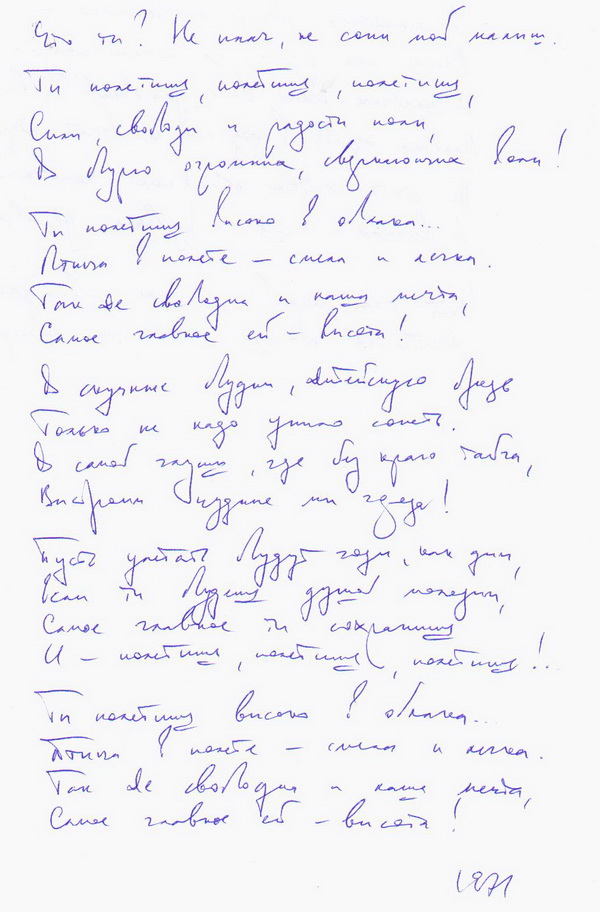 Что ты? Не плачь, не сопи мой малыш.
Ты полетишь, полетишь, полетишь,
Силы, свободы и радости полн,
В бурю огромных, сверкающих волн!
Ты полетишь высоко в облака...
Птица в полете – смела и легка.
Так же свободна и наша мечта,
Самое главное ей – высота!
В скучные будни, житейскую грязь
Только не надо уныло
В самой глуши, где бы краю
Выстроим чудные мы
Пусть улетать будут годы, как дым,
Если ты будешь душой молодым,
Самое главное ты сохранишь
И – полетишь, полетишь, полетишь!..
Ты полетишь высоко в облака...
Птица в полете – смела и легка.
Так же свободна и наша мечта,
Самое главное ей – высота!
1971